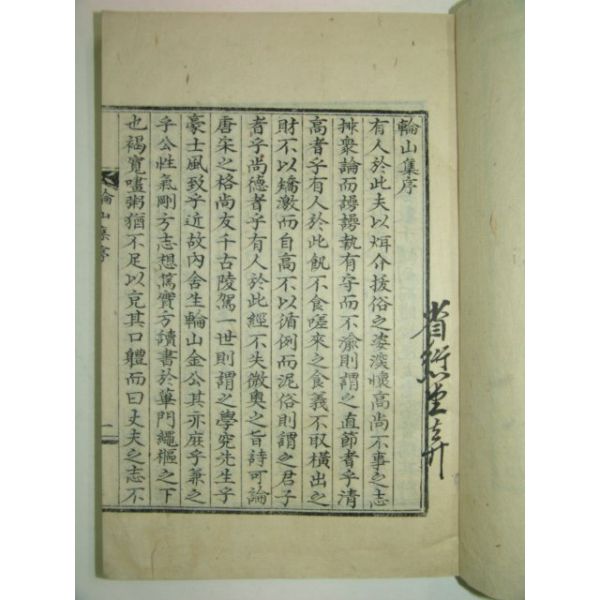 輪山集序
有人於此夫以㷣介援俗之姿濩懷高尚不事之志
排衆論而諤諤執有守而不渝則謂之直節者乎清
高者乎有人於此飢不食嗟來之食義不取橫出之
財不以矯激而自高不以循例而泥俗則謂之君子
者乎尚德者乎有人於此經不失微奧之旨詩可論
唐宋之格尚友千古陵駕一世則謂之學究先生乎
豪士風致乎近故內舍生輪山金公其亦庶乎兼之
乎公性氣剛方志想篤實方讀書於蓽門繩樞之下
也褐寬嚍粥猶不足以充其口軆而曰丈夫之志不
輪山集序
一